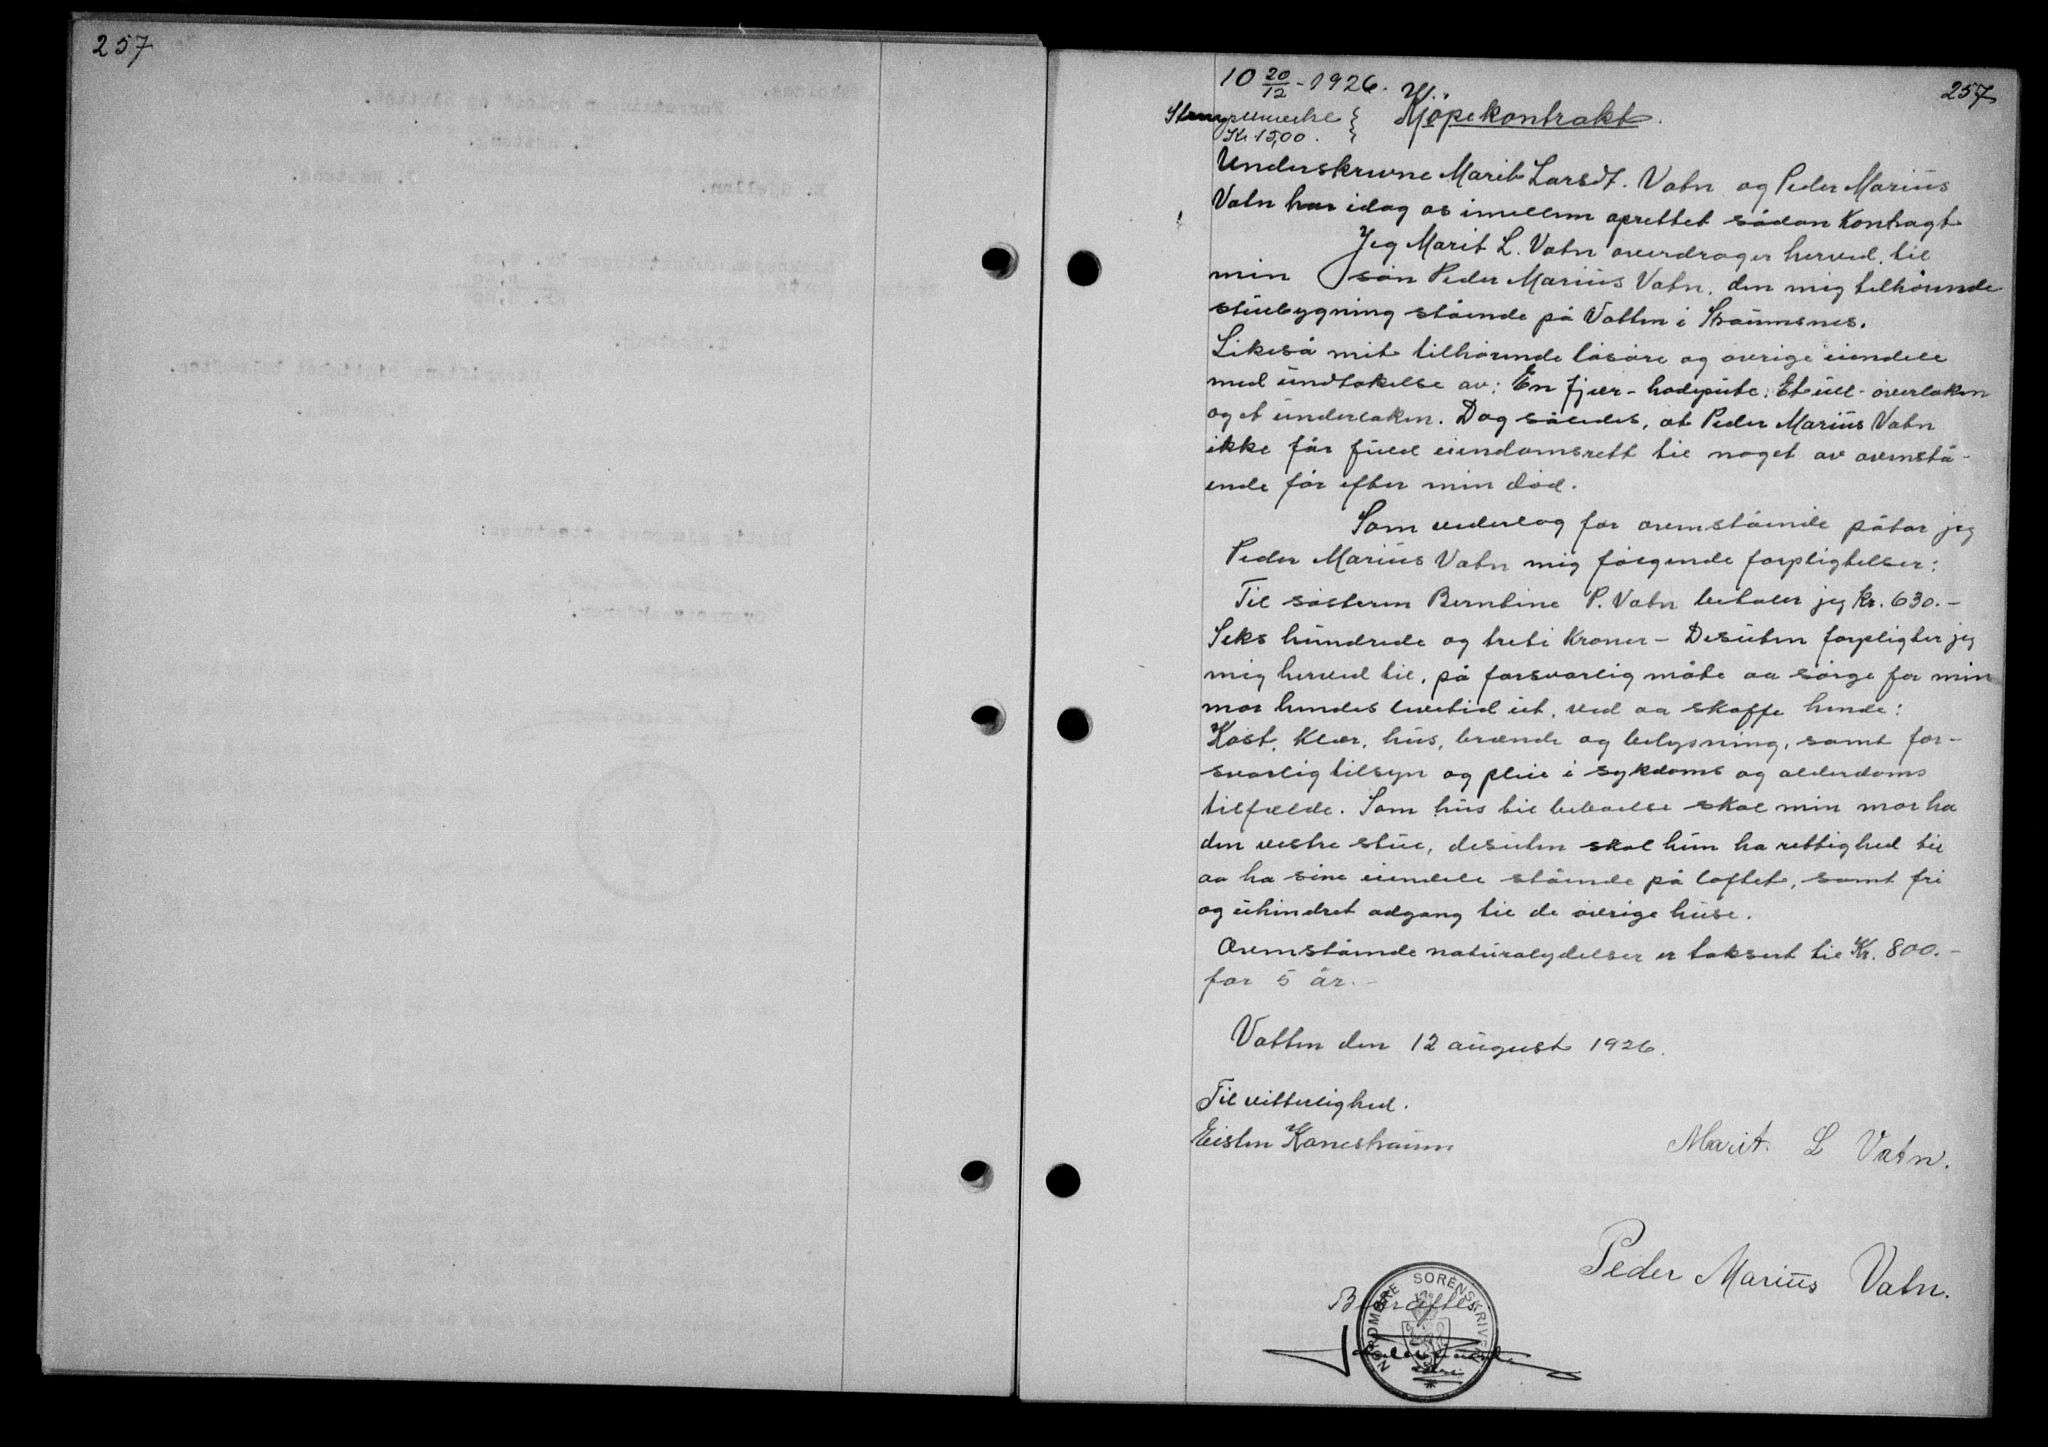 257
257
10 20/12 - 1926.
Kjøpekontrakt.
Kr 15,00.
Underskrevne Marit Larsdt. Vatn og Peder Marius
Vatn har idag os imellem oprettet sådan Kontragt
Jeg Marit L. Vatn overdrager herved til
min søn Peder Marius Vatn, den mig tilhørende
stuebygning stående på Vatten i Straumsnes.
Likeså mit tilhørende løsøre og øvrige eiendele
med undtakelse av: En fjær-hodepute; Et ull-overlaken
og et underlaken. Dog således, at Peder Marius Vatn
ikke får fuld eiendomsrett til noget av ovenstå-
ende før efter min død.
Som vederlag for ovenstående påtar jeg
Peder Marius Vatn mig følgende forpligtelser:
Til søsteren Berntine P. Vatn betaler jeg kr. 630.-
Seks hundrede og treti Kroner - Desuten forpligter jeg
mig herved til, på forsvarlig måte aa sørge for min
mor hendes levetid ut, ved aa skaffe hende:
Kost, Klær, hus, brænde og belysning, samt for-
svarlig tilsyn og pleie i sykdoms og alderdoms
tilfælde. Som hus til beboelse skal min mor ha
den vestre stue, desuten skal hun ha rettighed til
aa ha sine eiendele stående på loftet, samt fri
og uhindret adgang til de øvrige huse.
Ovenstående naturalydelser er taksert til Kr. 800.-
for 5 år.-
Vatten den 12 august 1926.
Til vitterlighed.
Eisten Kanestraum
Marit. L Vatn.
Peder Marius Vatn.
Bekræftes
NORDMØRE SORENSKRIVERI